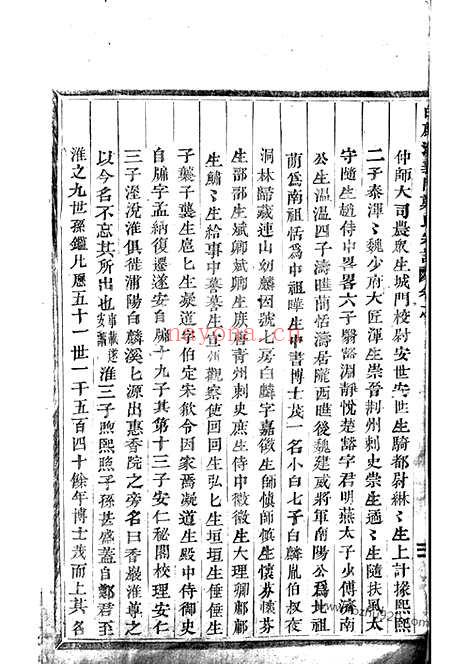 仲師大司農眾生城門校尉安世安世生騎都尉綝〻生上計掾熙熙
二子泰渾〻魏少府大匠渾生崇晉荊州刺史崇生遹〻生隨扶風太
守隨生趙侍中畧畧六子翳豁淵靜悅楚豁字君明燕太子少傅濟南
公生溫溫四子濤曄蘭恬濤居隴西曄後魏建威將軍南陽公為北祖
蘭為南祖恬為中祖曄生中書博士茂一名小白七子白麟胤伯叔夜
洞林歸藏連山幼麟因號七房白麟字嘉徵生師慎師慎生懷芬懷芬
生部部生斌卿斌卿生庶庶青州刺史庶生侍中微微生大理卿鄘鄘
生鏽〻生給事中蔂蔂生青州觀察使回回生弘匕生垣垣生倕倕生
子蔂子蔂生扈匕生凝道字伯定宋歙令因家焉凝道生殿中侍御史
自牖字孟納復遷遂安自牖十九子其第十三子安仁秘閣校理安仁
三子涇浼淮俱徙浦陽白麟溪匕源出惠香院之旁名曰香巖淮尊之
以今名不忘其所出也 淮三子煦熙照子孫甚盛蓋自鄭君至
淮之九世孫鑑凡歷五十一世一千五百四十餘年博士茂而上其名
nayona.cn